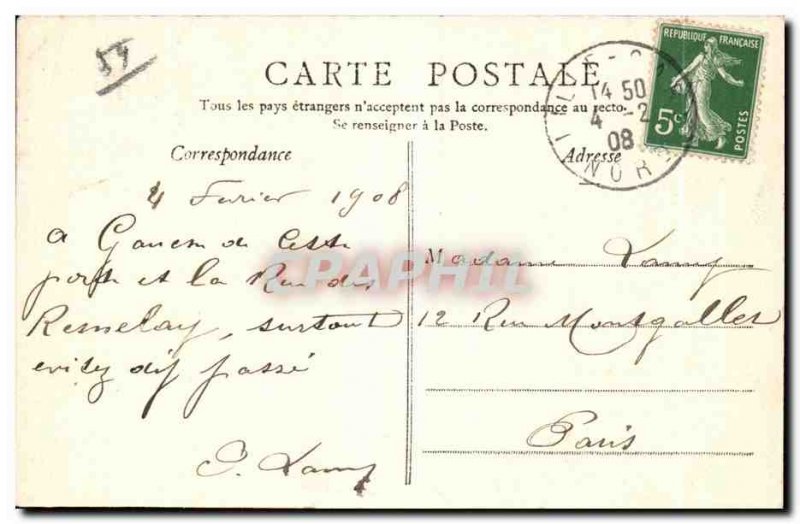 54
CARTE POSTALE
Tous les pays étrangers n'acceptent pas la correspondance au recto.
Se renseigner à la Poste.
Correspondance
Adresse
REPUBLIQUE FRANÇAISE
5c
POSTES
14 50
4 -2
08
NORD
4 Fevrier 1908
a de Cette
porte et la Rue des
surtout
evitez passé
Lamy
Madame Lamy
12 Rue Montgallet
Paris
CPAPHIL